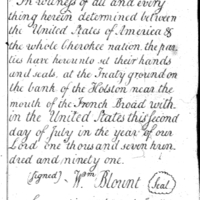 In witness of all and every
thing herein determined between
the United States of America &
the whole Cherokee nation, the par
ties have hereunto set their hands
and seals, at the Treaty ground on
the bank of the Holston near the
mouth of the French Broad with
in the United States this second
day of July in the year of our
Lord one thousand seven hun
dred and ninety one.
(signed) Wm Blount (Seal)